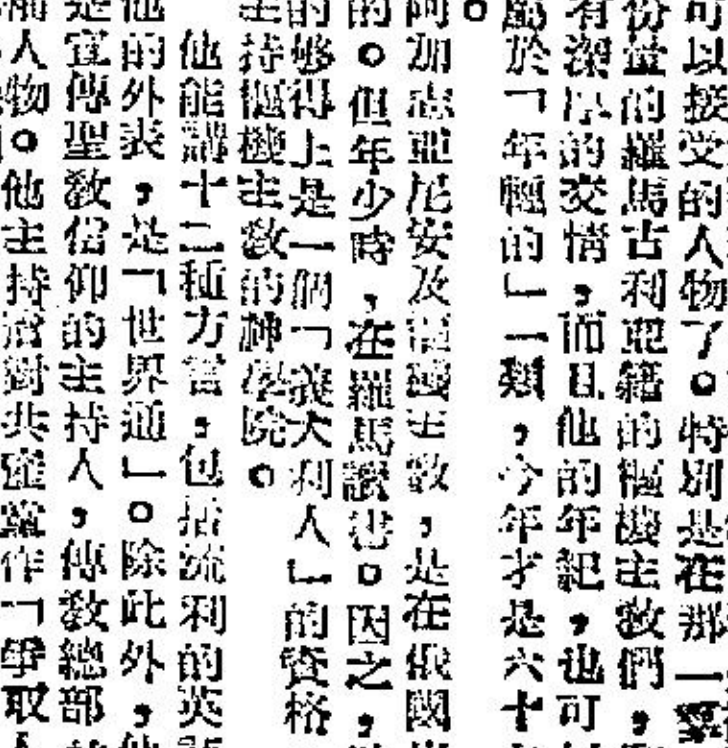 可以接受的人物了。特別是在那一
份量的羅馬古利亞籍的樞機主教們，
有深厚的交情，而且他的年紀，也可
屬於「年輕的」一類，今年才是六十
阿加志亞尼安及 主教，是在俄國
的。但年少時，在羅馬讀書。因之，
的够得上是一個「義大利人」的資格
主持樞機主教的神學院。
他能講十二種方言，包括流利的英
他的外表，是「世界通」。除此外，他
是宣傳聖教信仰的主持人，傳教總部
人物。他主持 對共產黨作「爭取